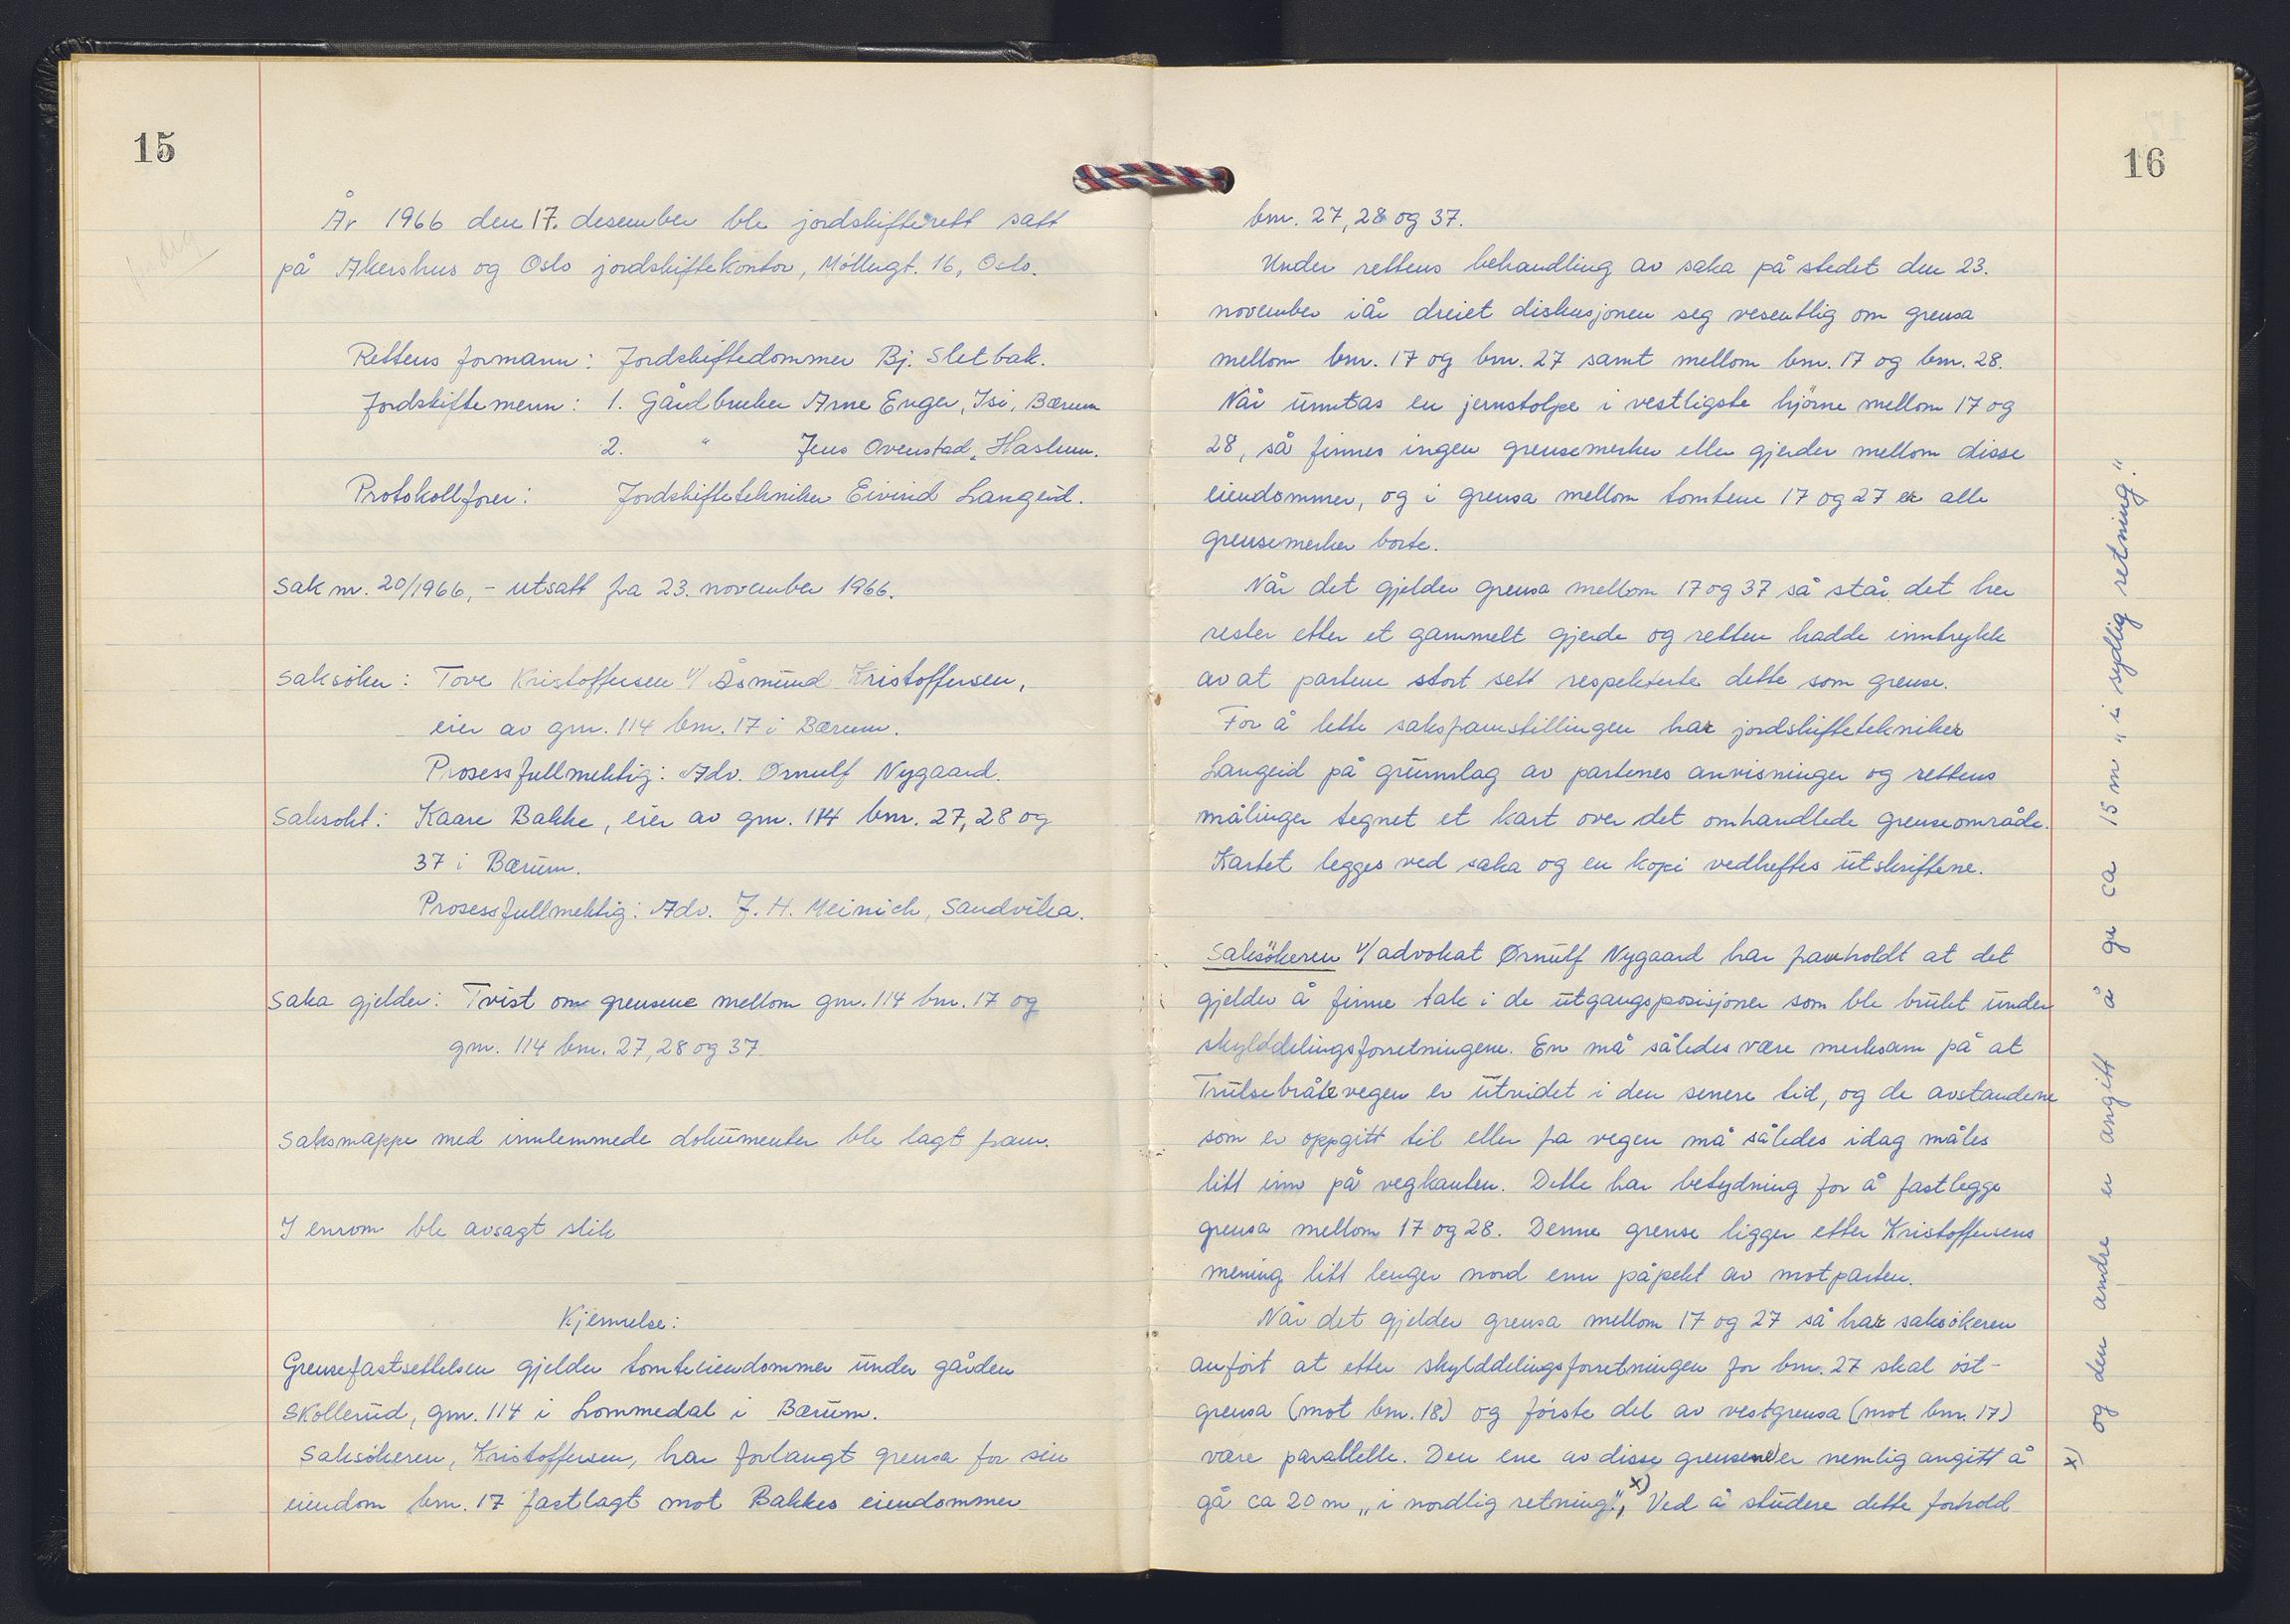 15
År 1966 den 17. desember ble jordskifterett satt
på Akershus og Oslo jordskiftekontor, Møllergt. 16, Oslo.
Rettens formann: Jordskiftedommer Bj. Sletbak.
Jordskiftemenn: 1. Gårdbruker Arne Enger, Isi, Bærum
2. " Jens Ovenstad, Haslum.
Protokollfører: Jordskiftetekniker Eivind Langeid.
Sak nr. 20/1966, - utsatt fra 23. november 1966.
Saksøker: Tove Kristoffersen v/ Åsmund Kristoffersen,
eier av gnr. 114 bnr. 17 i Bærum.
Prosessfullmektig: Adv. Ørnulf Nygaard.
Saksøkt: Kaare Bakke, eier av gnr. 114 bnr. 27, 28 og
37 i Bærum.
Prosessfullmektig: Adv. J. H. Meinich, Sandvika.
Saka gjelder: Tvist om grensene mellom gnr. 114 bnr. 17 og
gnr. 114 bnr. 27, 28 og 37
Saksmappe med innlemmede dokumenter ble lagt fram.
I enrom ble avsagt slik
Kjennelse:
Grensefastsettelsen gjelder tomteeiendommer under gården
Skollerud, gnr. 114 i Lommedal i Bærum.
Saksøkeren, Kristoffersen, har forlangt grensa for sin
eiendom bnr. 17 fastlagt mot Bakkes eiendommer
16
bnr. 27, 28 og 37.
Under rettens behandling av saka på stedet den 23.
november i år dreiet diskusjonen seg vesentlig om grensa
mellom bnr. 17 og bnr. 27 samt mellom bnr. 17 og bnr. 28.
Når unntas en jernstolpe i vestligste hjørne mellom 17 og
28, så finnes ingen grensemerker eller gjerder mellom disse
eiendommer, og i grensa mellom tomtene 17 og 27 er alle
grensemerker borte.
Når det gjelder grensa mellom 17 og 37 så står det her
rester etter et gammelt gjerde og retten hadde inntrykk
av at partene stort sett respekterte dette som grense.
For å lette saksframstillingen har jordskiftetekniker
Langeid på grunnlag av partenes anvisninger og rettens
målinger tegnet et kart over det omhandlede grenseområde.
Kartet legges ved saka og en kopi vedheftes utskriftene.
Saksøkeren v/ advokat Ørnulf Nygaard har framholdt at det
gjelder å finne tak i de utgangsposisjoner som ble brukt under
skylddelingsforretningene. En må således være merksam på at
Trulsebråtevegen er utvidet i den senere tid, og de avstandene
som er oppgitt til eller fra vegen må således idag måles
litt inn på vegkanten. Dette har betydning for å fastlegge
grensa mellom 17 og 28. Denne grense ligger etter Kristoffersens
mening litt lenger nord enn påpekt av motparten.
Når det gjelder grensa mellom 17 og 27 så har saksøkeren
anført at etter skylddelingsforretningen for bnr. 27 skal øst-
grensa (mot bnr. 18) og første del av vestgrensa (mot bnr. 17)
være parallelle. Den ene av disse grensene er nemlig angitt å
gå ca 20 m „i nordlig retning", x) Ved å studere dette forhold
x) og den andre er angitt å gå ca 15 m „i sydlig retning."